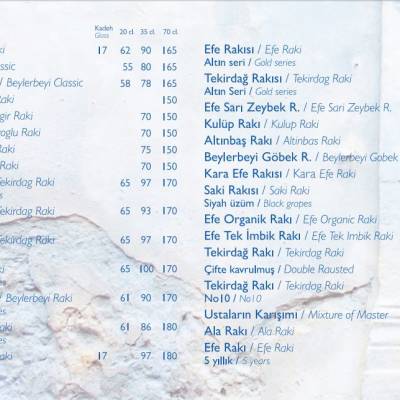 Kadeh 20 cl. 35 cl. 70 cl.
Glass
aki 17 62 90 165
ssic 55 80 165
/ Beylerbeyi Classic 58 78 165
Raki 150
gir Raki 70 150
roglu Raki 70 150
Raki 75 150
Raki 70 150
Tekirdag Raki 65 97 170
es
Tekirdag Raki 65 93 170
Tekirdag Raki 65 97 170
65 100 170
/ Beylerbeyi Raki 61 90 170
Raki 61 86 180
Raki 17 97 180
Efe Rakısı / Efe Raki
Altın seri / Gold series
Tekirdağ Rakısı / Tekirdag Raki
Altın Seri / Gold series
Efe Sarı Zeybek R. / Efe Sari Zeybek R.
Kulüp Rakı / Kulup Raki
Altınbaş Rakı / Altinbas Raki
Beylerbeyi Göbek R. / Beylerbeyi Gobek
Kara Efe Rakısı / Kara Efe Raki
Saki Rakısı / Saki Raki
Siyah üzüm / Black grapes
Efe Organik Rakı / Efe Organic Raki
Efe Tek İmbik Rakı / Efe Tek Imbik Raki
Tekirdağ Rakı / Tekirdag Raki
Çifte kavrulmuş / Double Rausted
Tekirdağ Rakı / Tekirdag Raki
No10 / No10
Ustaların Karışımı / Mixture of Master
Ala Rakı / Ala Raki
Efe Rakı / Efe Raki
5 yıllık / 5 years